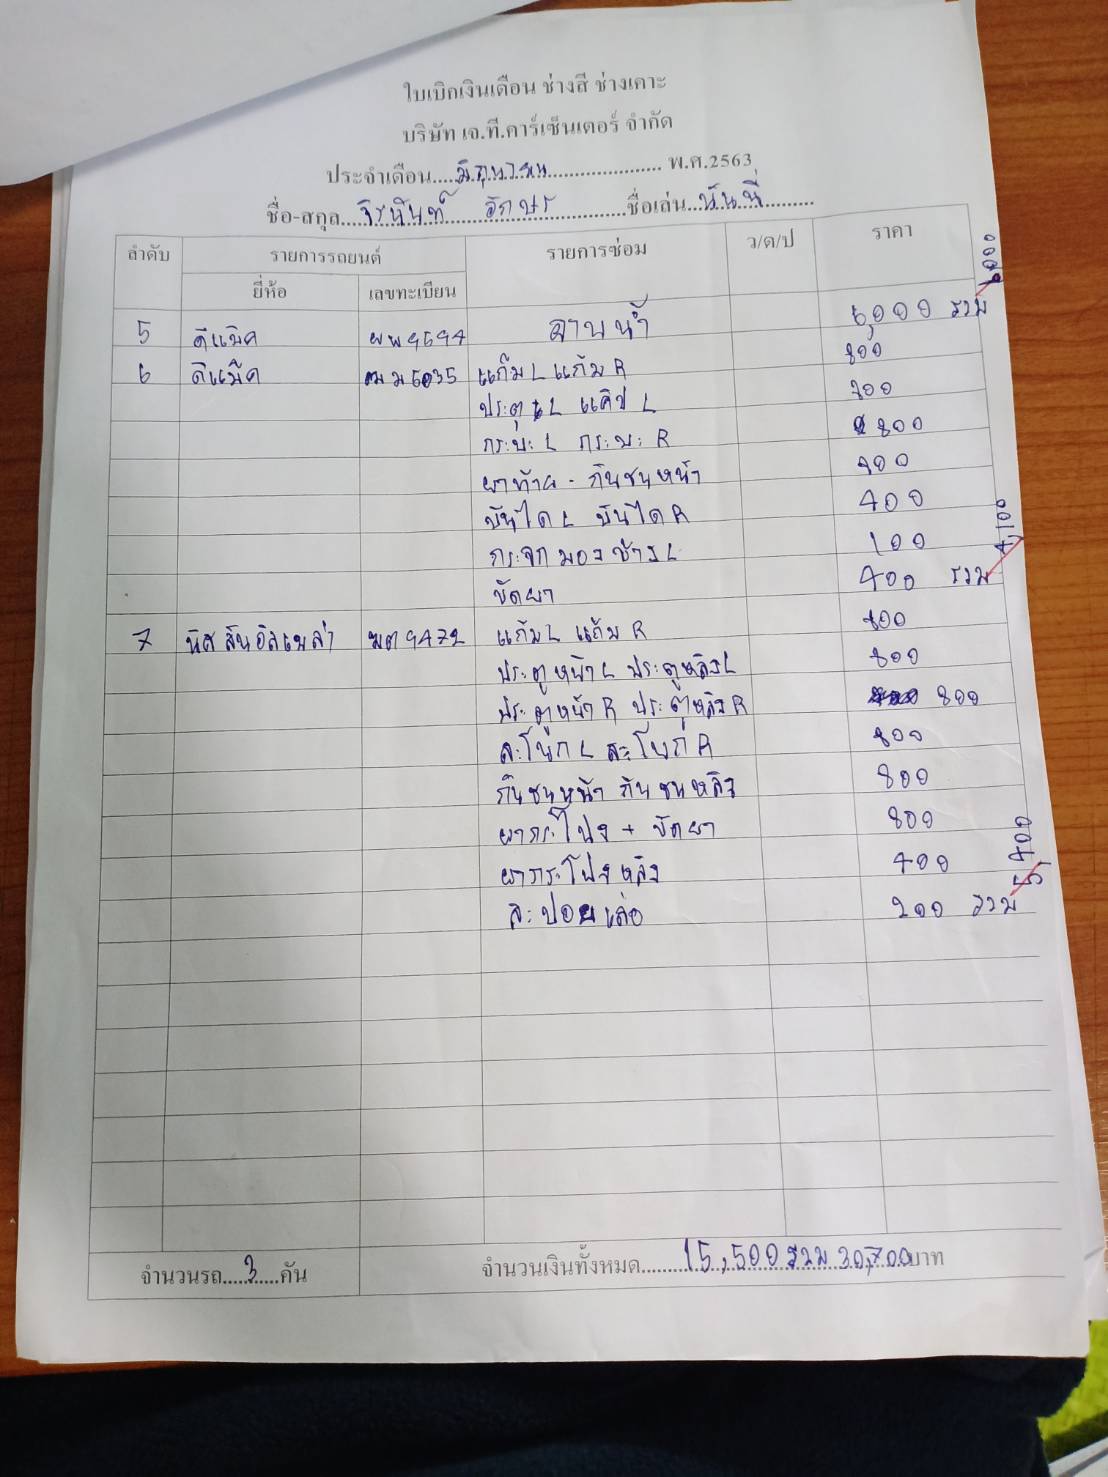 ใบเบิกเงินเดือน ช่างสี ช่างเคาะ
บริษัท เจ.ที.คาร์เซ็นเตอร์ จำกัด
ประจำเดือน....มิถุนายน..................... พ.ศ.2563
ชื่อ-สกุล...จิรนันท์ อักษร...............ชื่อเล่น..นันนี่.........
ลำดับ รายการรถยนต์ รายการซ่อม ว/ด/ป ราคา
ยี่ห้อ เลขทะเบียน
5 ดีแม็ค ผพ4594 อาบน้ำ 6,000 รวม 6,000
6 ดีแม็ค ฒม6035 แก้มL แก้มR 800
ประตูL แค๊ปL 700
กระบะL กระบะR 800
ฝาท้าย - กันชนหน้า 900
บันไดL บันไดR 400
กระจกมองข้างL 100
ขัดผา 400 รวม 4,100
7 นิสสันอัลเมล่า ฆต9472 แก้มL แก้มR 800
ประตูหน้าL ประตูหลังL 800
ประตูหน้าR ประตูหลังR 800
สะโพกL สะโพกR 800
กันชนหน้า กันชนหลัง 800
ฝากระโปรง + ขัดผา 800
ฝากระโปงหลัง 400
สะปอยเลอ 200 รวม 5,400
จำนวนรถ.....3....คัน จำนวนเงินทั้งหมด.......15,500 รวม 30,700บาท